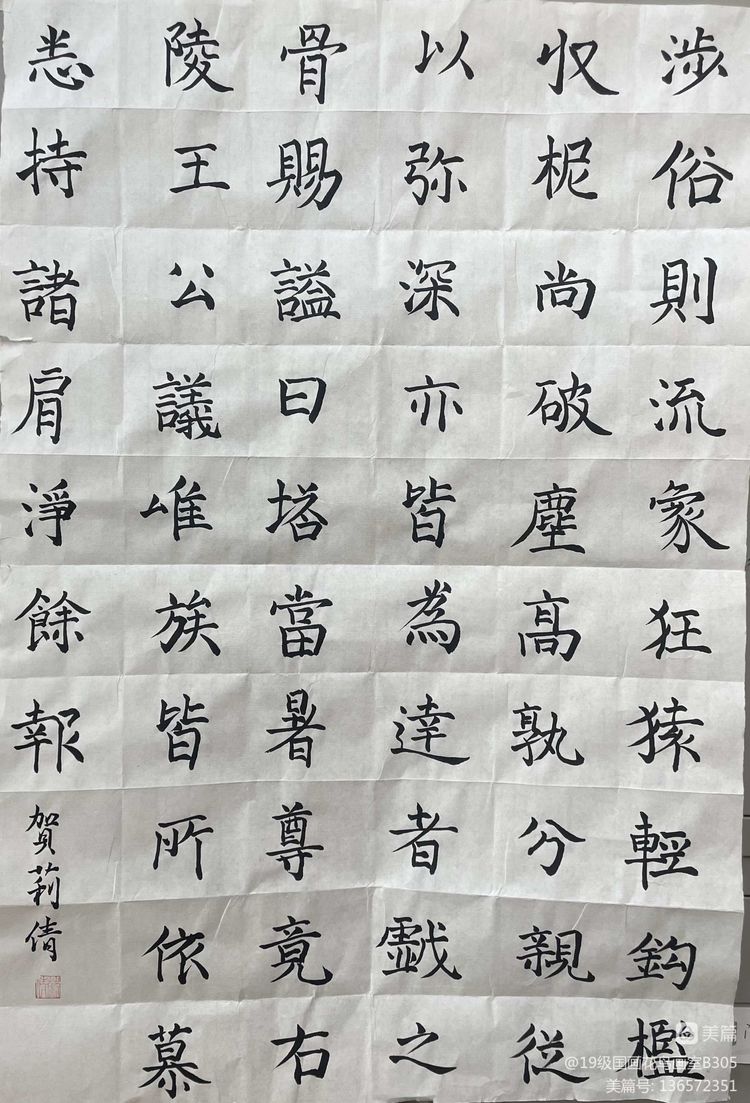 涉俗則流象狂猿輕鈎檻
収柅尚破塵高孰分親従
以弥深亦皆為達者戯之
骨賜謚曰塔當暑尊竟右
陵王公議唯族皆所依慕
恙持諸肩淨餘報
賀莉倩
美篇
@19级国画花鸟画室B305
美篇号: 136572351